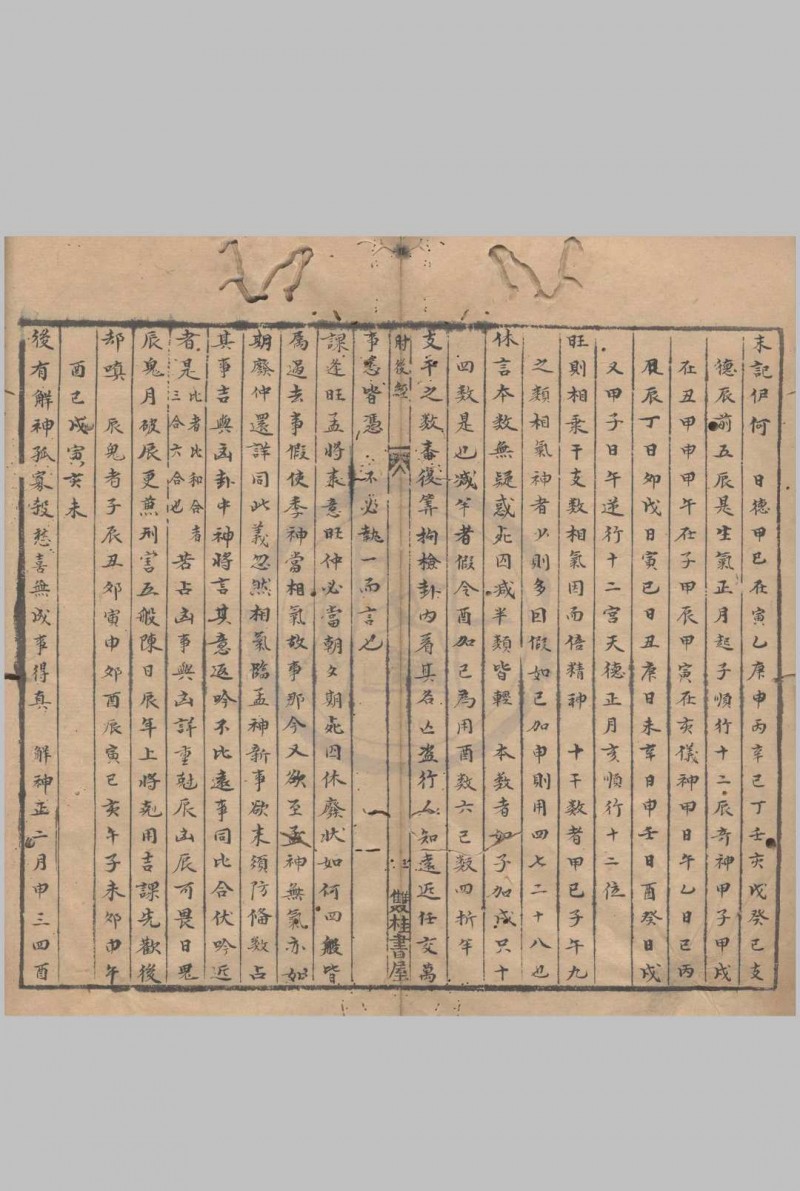 末記伊何　日德甲巳在寅乙庚申丙辛巳丁壬亥戊癸巳支
德辰前五辰是生氣正月起子順行十二辰奇神甲子甲戌
在丑甲申甲午在子甲辰甲寅在亥儀神甲日午乙日巳丙
辰丁日卯戊日寅巳日丑庚日未辛日申壬日酉癸日戌
又甲子日午逆行十二宮天德正月亥順行十二位
旺則相乘干支数相氣因而倍精神　十干数者甲巳子午九
之類相氣神者少則多因假如巳加申則用四七二十八也
休言本数無疑惑死囚减半類皆輕　本数者如子加戌只十
四数是也减半者假令酉加巳為用酉数六巳数四折半
支平之数審後筭拘檢卦内看其名亾盗行人知遠近任交萬
肘後經　六　雙桂書屋
事悉皆憑　不必執一而言也
課逢旺孟將来意旺仲必當朝夕期死囚休廢狀如何四般皆
属過去事假使季神當相氣故事那今又欲至孟神無氣亦如
期廢仲還詳同此義忽然相氣臨孟神新事欲来須防脩数占
其事吉與凶卦中神將言其意返吟不比遠事同比合伏吟近
者是比者比和合者三合六合也　若占凶事與凶詳重尅辰凶辰可畏日鬼
辰鬼月破辰更兼刑害五般陳日辰年上將尅用吉課先歡後
却嗔　辰鬼者子辰丑卯寅申卯酉辰寅巳亥午子未卯申午
酉巳戌寅亥未
後有解神孤寡殺愁喜無成事得真　解神正二月申三四酉